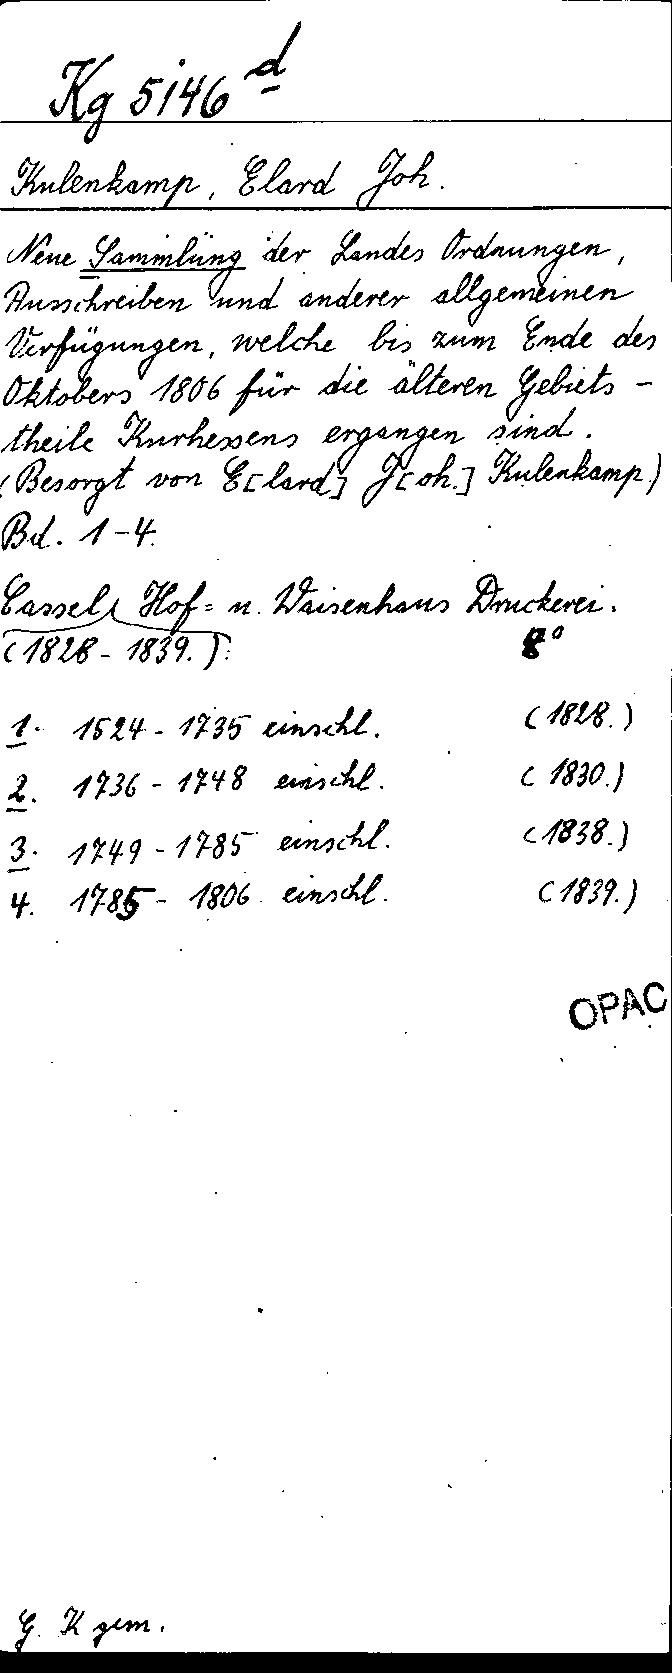 Kg 5146 d
Kulenkamp, Elard Joh.
Neue Sammlung der Landes Ordnungen,
Ausschreiben und anderer allgemeinen
Verfügungen, welche bis zum Ende des
Oktobers 1806 für die älteren Gebiets-
theile Kurhessens ergangen sind.
(Besorgt von E[lard] J[oh.] Kulenkamp)
Bd. 1-4.
Cassel, Hof= u. Waisenhaus Druckerei.
(1828-1839.) 8°
1. 1524-1735 einschl. (1828.)
2. 1736-1748 einschl. (1830.)
3. 1749-1785 einschl. (1838.)
4. 1785-1806 einschl. (1839.)
OPAC
G. K gem.